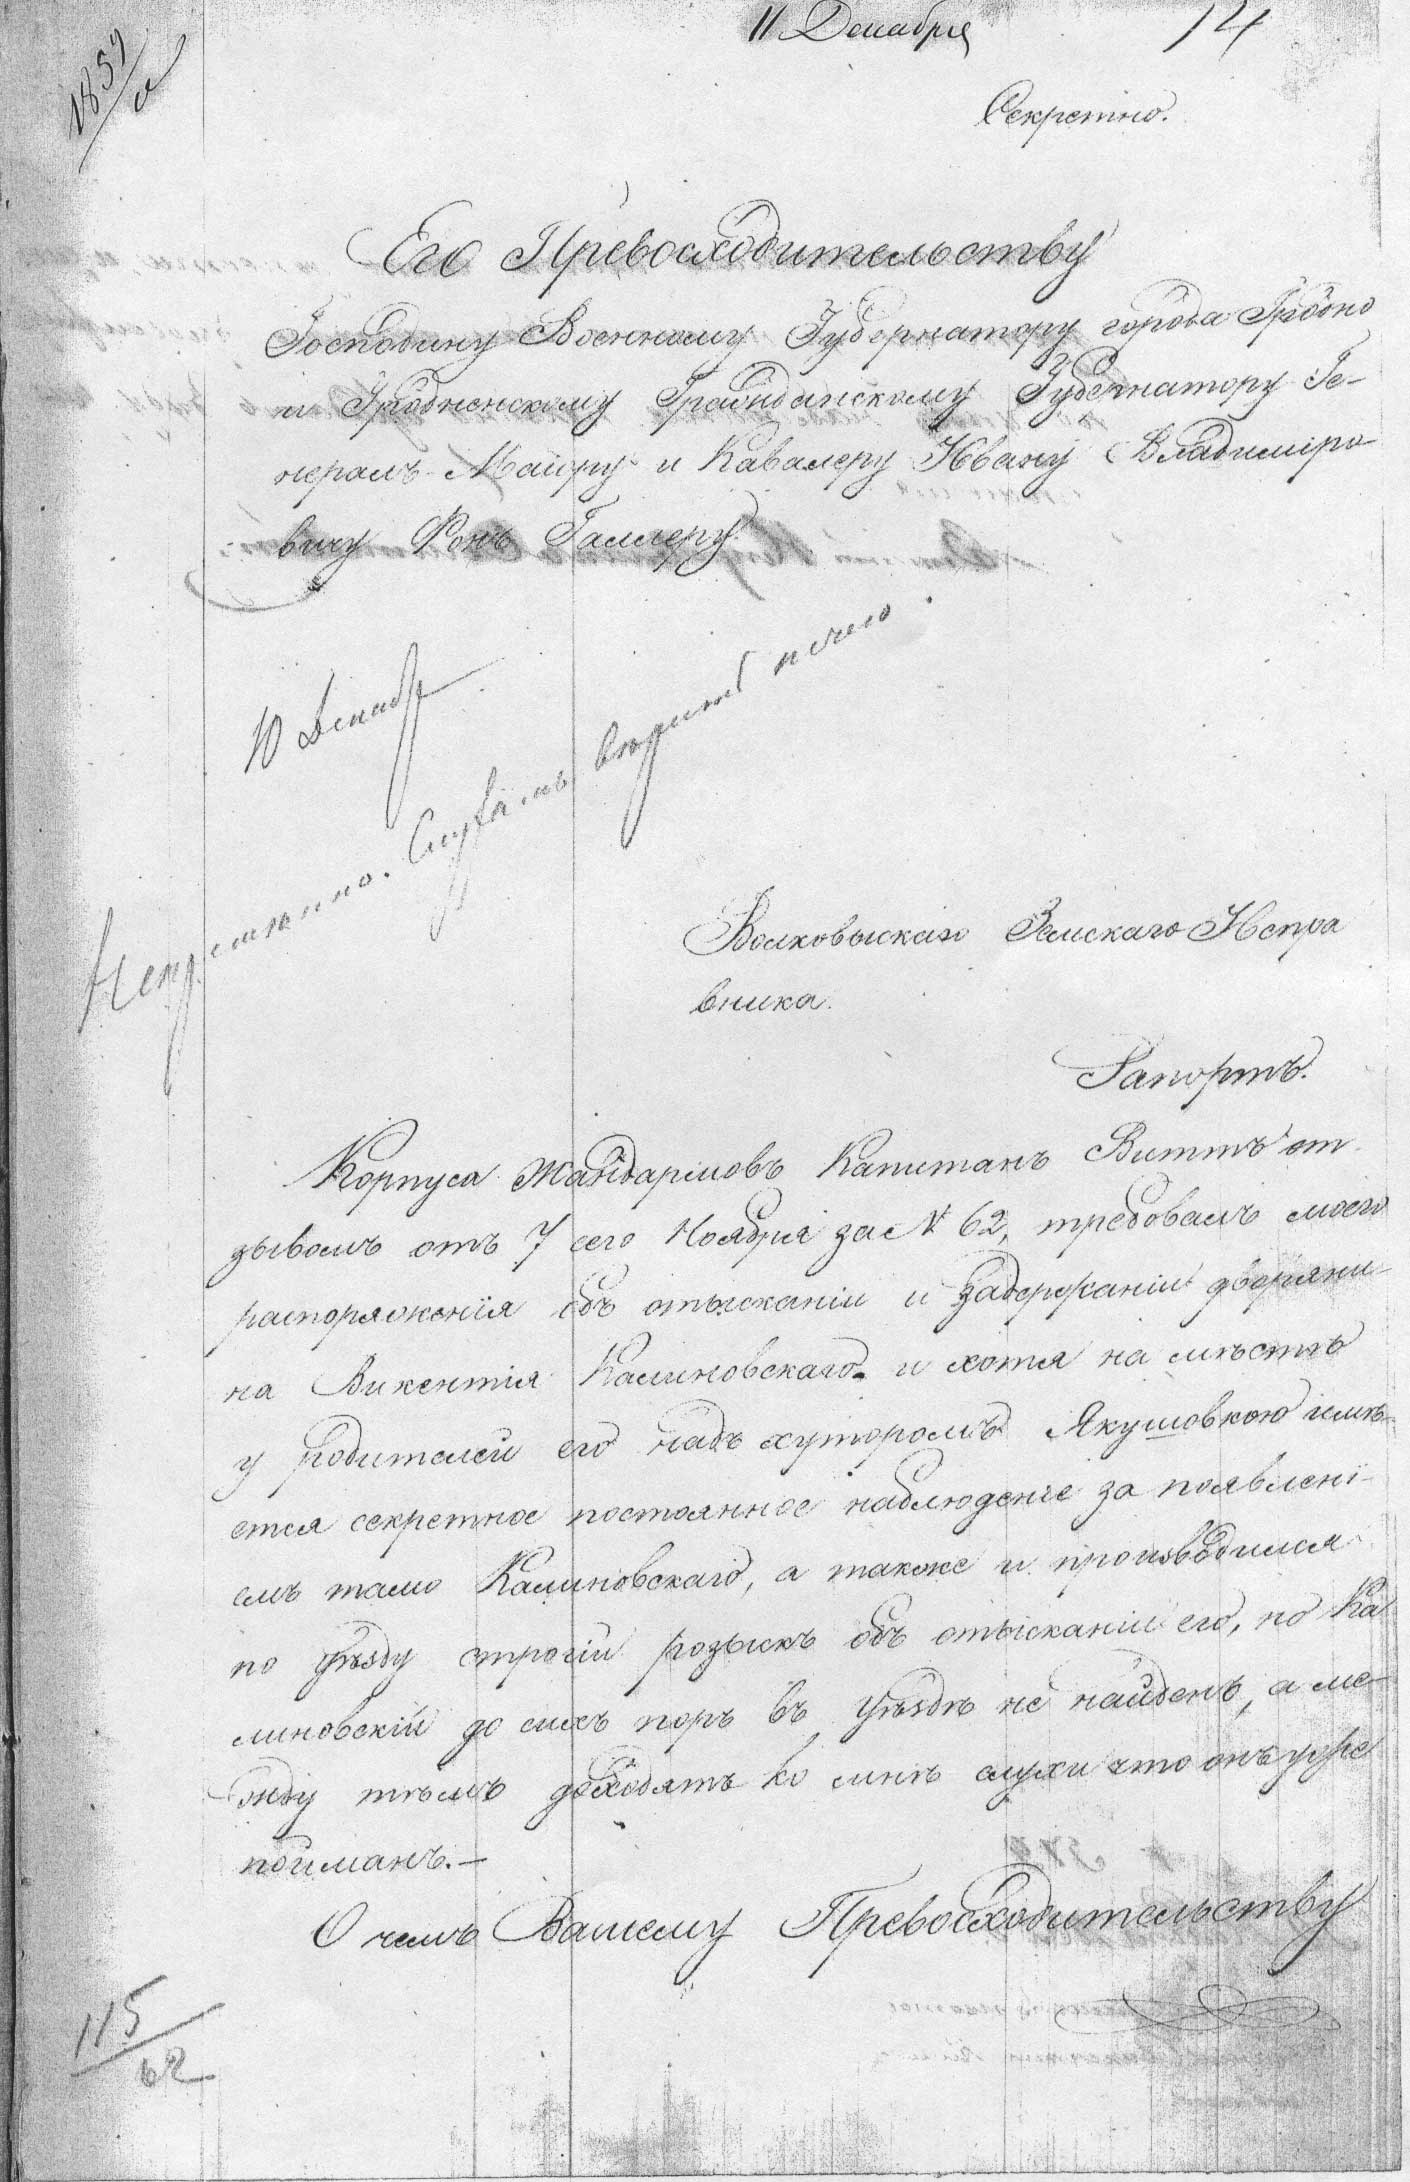 11 Декабря
14
1859
Секретно.
Его Превосходительству
Господину Военному Губернатору города Гродно
и Гродненскому Гражданскому Губернатору Ге-
нералъ-Маіору и Кавалеру Ивану Владиміро
вичу Фонъ Галлеру.
10 Декабр
Слухамъ верить нечего.
Волковыскаго Земскаго Испра
вника.
Рапортъ.
Корпуса Жандармовъ Капитанъ Виттъ от
зывомъ отъ 7 сего Ноября за № 62, требовалъ моего
распоряженія объ отысканіи и задержаніи дворяни-
на Викентія Калиновскаго и хотя на мѣстѣ
у родителей его надъ хуторомъ Якушовкою имѣ-
ется секретное постоянное наблюденіе за появлені-
емъ тамо Калиновскаго, а также и производился
по уѣзду строгій розыскъ объ отысканіи его, но Ка
линовскій до сихъ поръ въ уѣздѣ не найденъ, а ме-
жду тѣмъ доходятъ ко мнѣ слухи что онъ уже
пойманъ.—
О чемъ Вашему Превосходительству
115
62